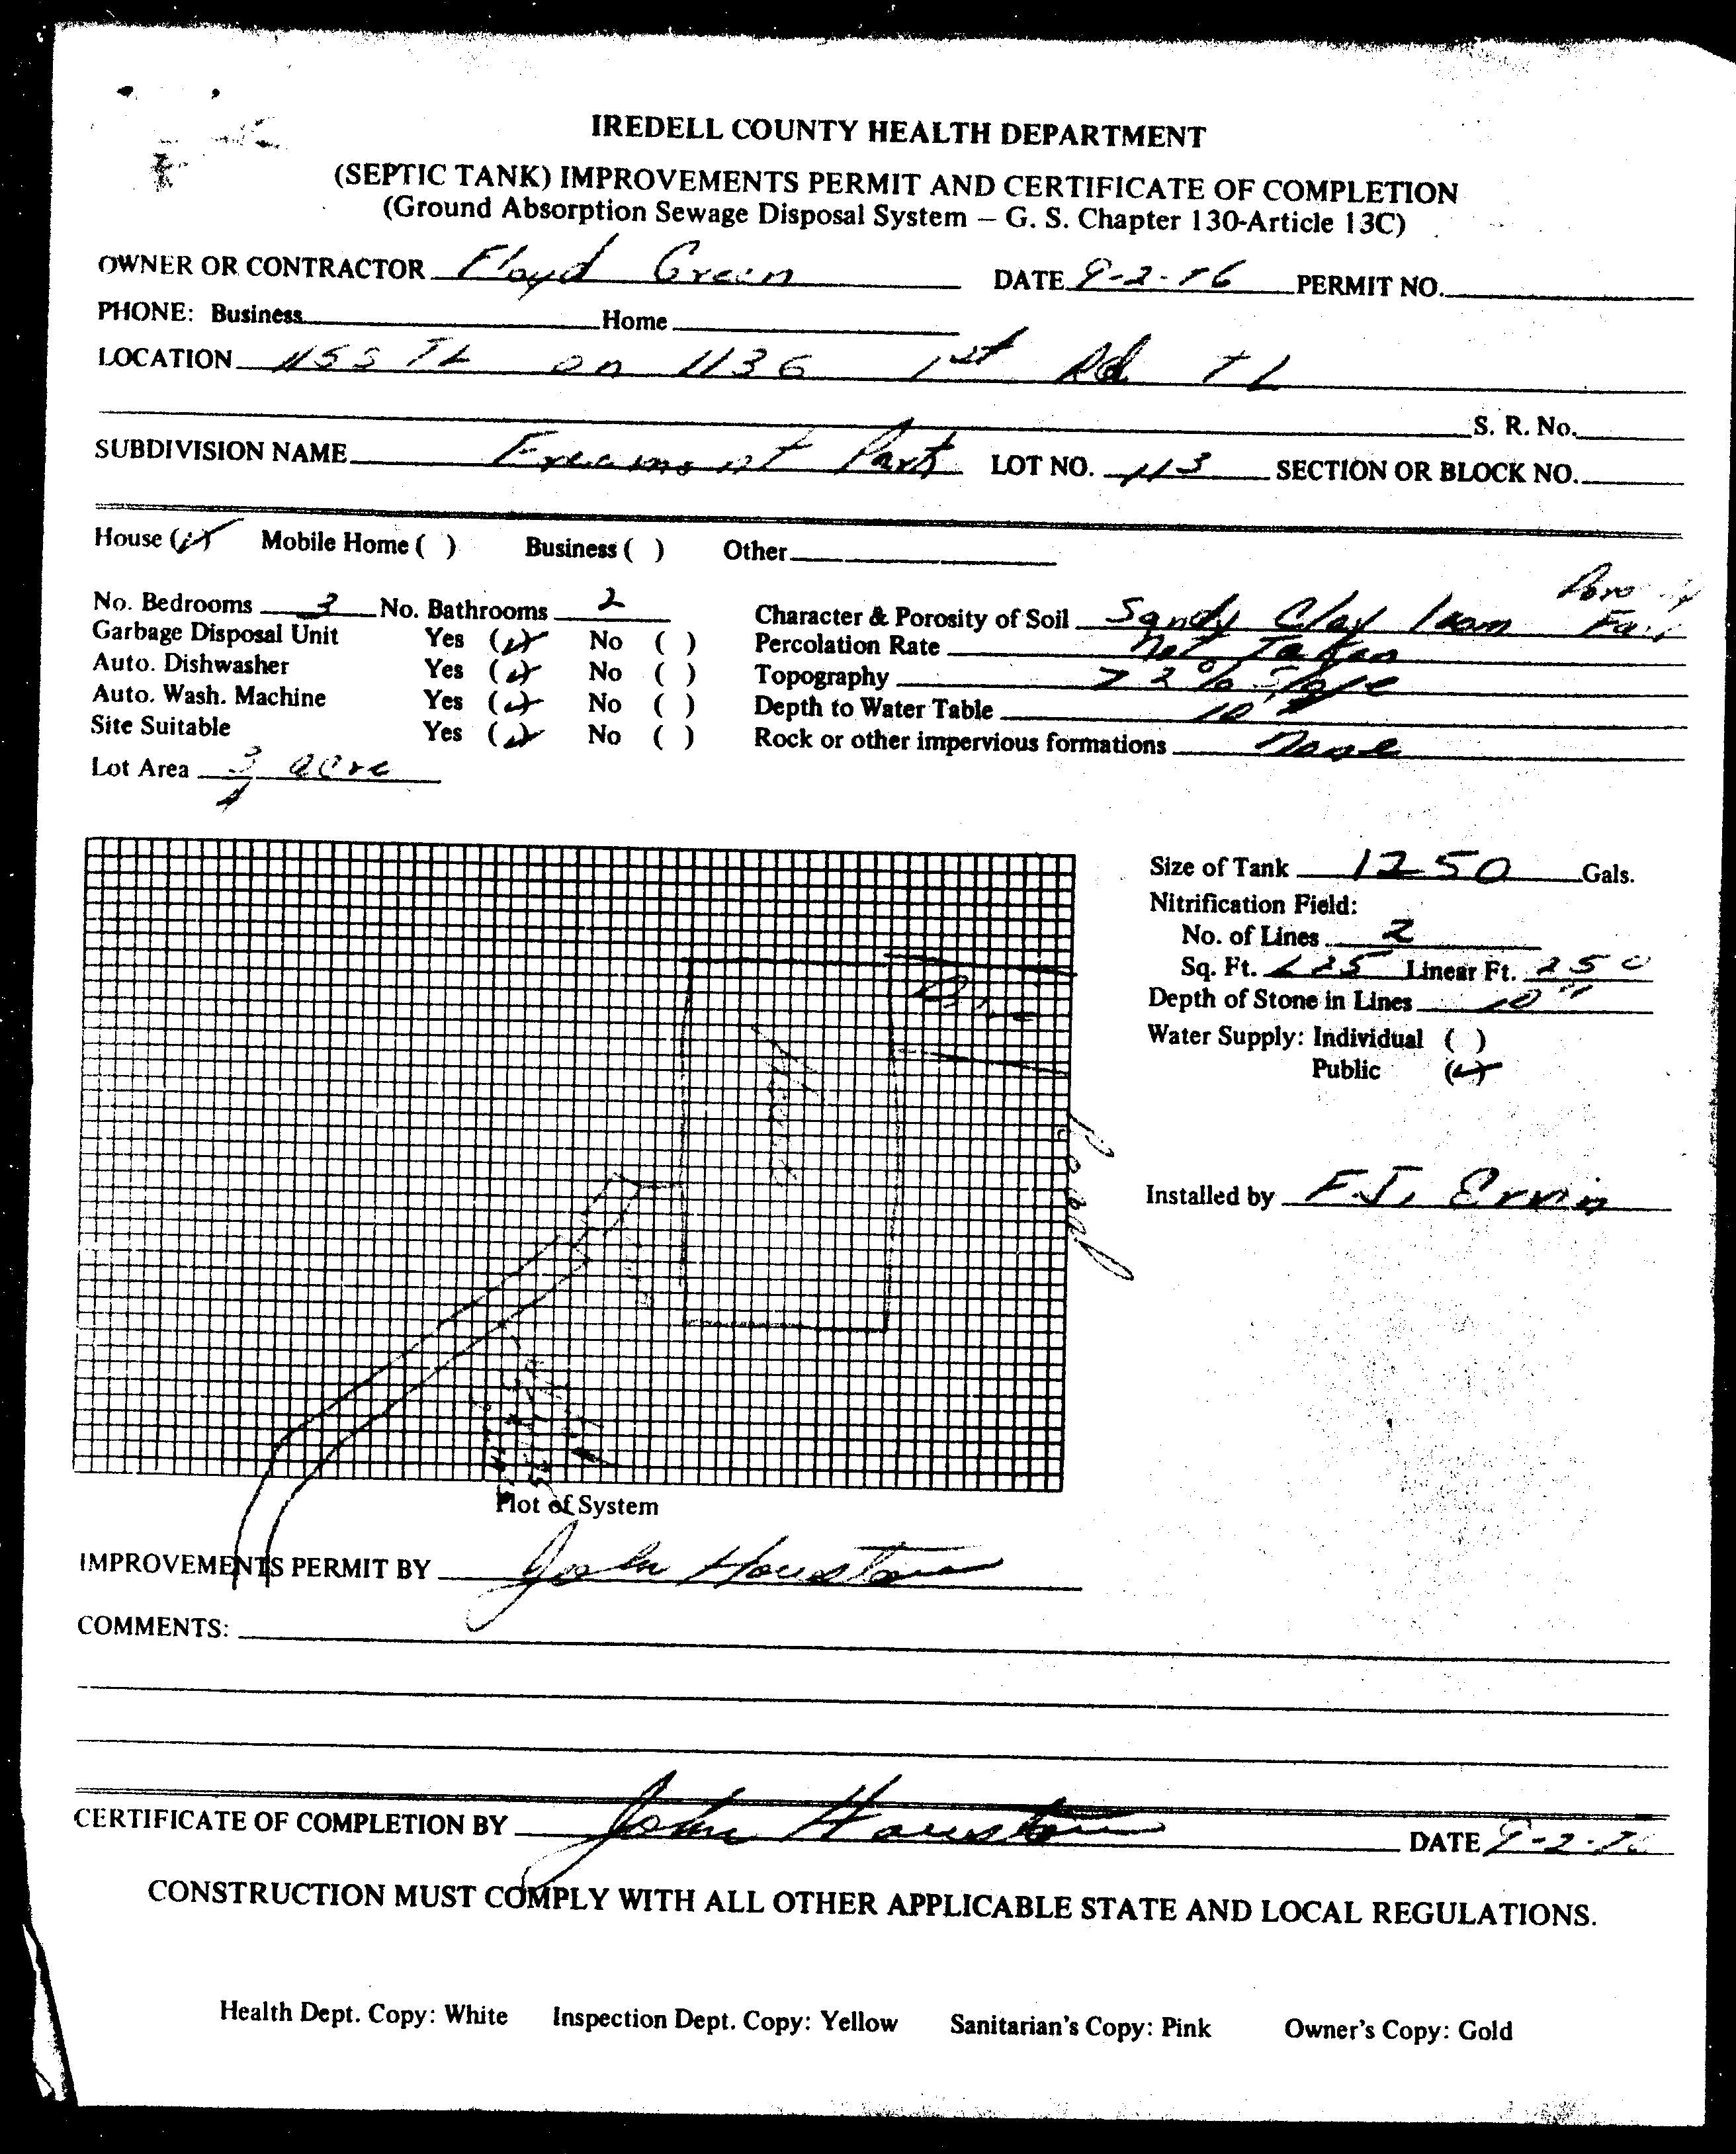 IREDELL COUNTY HEALTH DEPARTMENT
(SEPTIC TANK) IMPROVEMENTS PERMIT AND CERTIFICATE OF COMPLETION
(Ground Absorption Sewage Disposal System – G. S. Chapter 130-Article 13C)
OWNER OR CONTRACTOR Floyd Green DATE 9-2-76 PERMIT NO.
PHONE: Business Home
LOCATION 115 S TL on 1136 1st Rd. TL
S. R. No.
SUBDIVISION NAME Park LOT NO. 113 SECTION OR BLOCK NO.
House (✓) Mobile Home ( ) Business ( ) Other
No. Bedrooms 3 No. Bathrooms 2
Garbage Disposal Unit Yes (✓) No ( )
Auto. Dishwasher Yes (✓) No ( )
Auto. Wash. Machine Yes (✓) No ( )
Site Suitable Yes (✓) No ( )
Lot Area 3/4 acre
Character & Porosity of Soil Sandy Clay loam Porosity Fair
Percolation Rate Not Taken
Topography > 2% Slope
Depth to Water Table 10'+
Rock or other impervious formations None
Size of Tank 1250 Gals.
Nitrification Field:
No. of Lines 2
Sq. Ft. Linear Ft. 250
Depth of Stone in Lines 10"
Water Supply: Individual ( )
Public (✓)
Installed by F.J. Ervin
Drive
Road
Plot of System
IMPROVEMENTS PERMIT BY John Houston
COMMENTS:
CERTIFICATE OF COMPLETION BY John Houston DATE 9-2-76
CONSTRUCTION MUST COMPLY WITH ALL OTHER APPLICABLE STATE AND LOCAL REGULATIONS.
Health Dept. Copy: White Inspection Dept. Copy: Yellow Sanitarian's Copy: Pink Owner's Copy: Gold